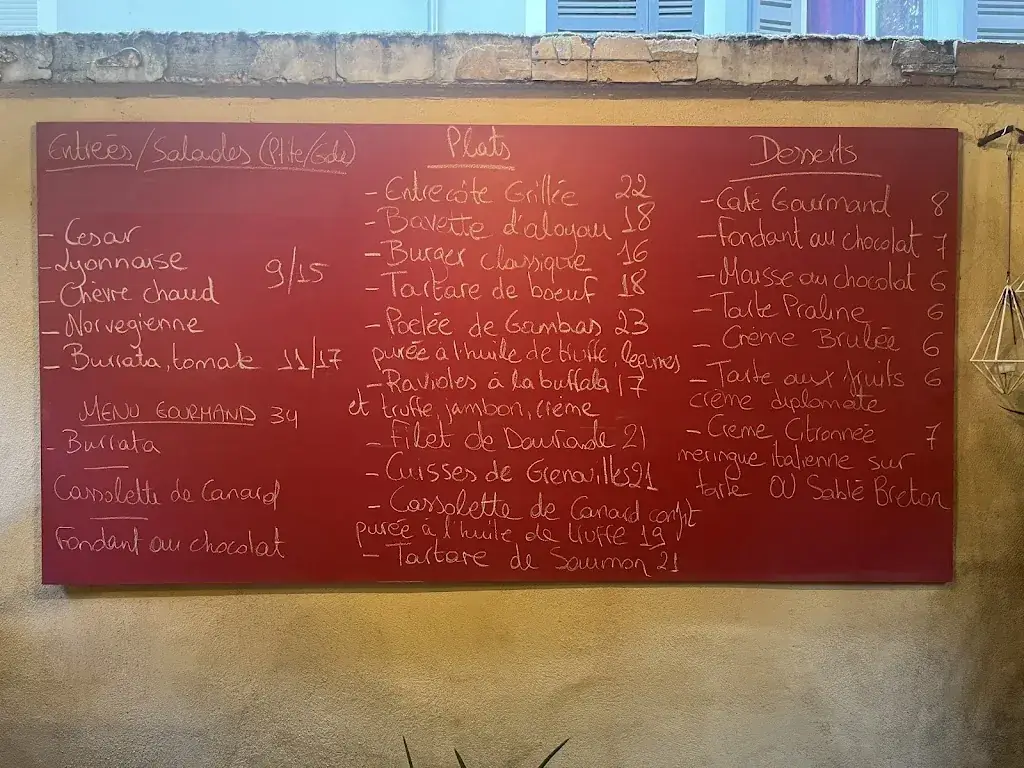 Entrées/Salades (Ptite/Gde)
- Cesar
- Lyonnaise
- Chèvre chaud
9/15
- Norvegienne
- Burrata, tomate 11/17
MENU GOURMAND 34
- Burrata
Cassolette de Canard
Fondant au chocolat
Plats
- Entrecôte Grillée 22
- Bavette d'aloyau 18
- Burger classique 16
- Tartare de boeuf 18
- Poelée de Gambas 23
purée à l'huile de truffe, legumes
- Ravioles à la buffala 17
et truffe, jambon, crème
- Filet de Daurade 21
- Cuisses de Grenouilles 21
- Cassolette de Canard confit
purée à l'huile de truffe 19
- Tartare de Saumon 21
Desserts
- Café Gourmand 8
- Fondant au chocolat 7
- Mousse au chocolat 6
- Tarte Praline 6
- Crème Brulée 6
- Tarte aux fruits 6
crème diplomate
- Creme Citronnée 7
meringue italienne sur
tarte OU Sablé Breton